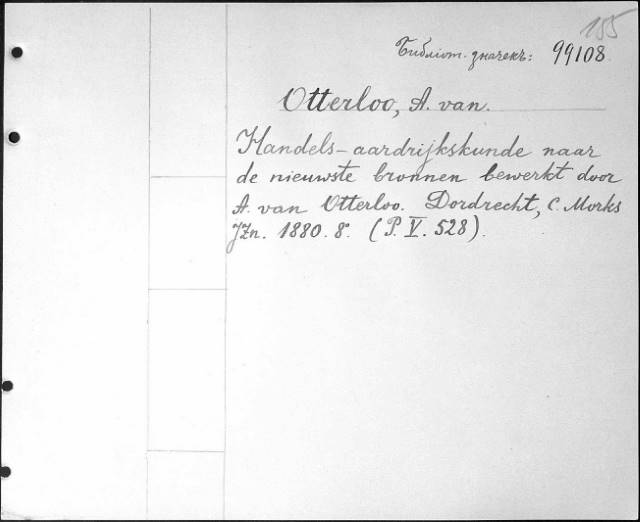 155
Библіот. значекъ: 99108
Otterloo, A. van.
Handels-aardrijkskunde naar
de nieuwste bronnen bewerkt door
A. van Otterloo. Dordrecht, C. Morks
JZn. 1880. 8°. (P. V. 528).